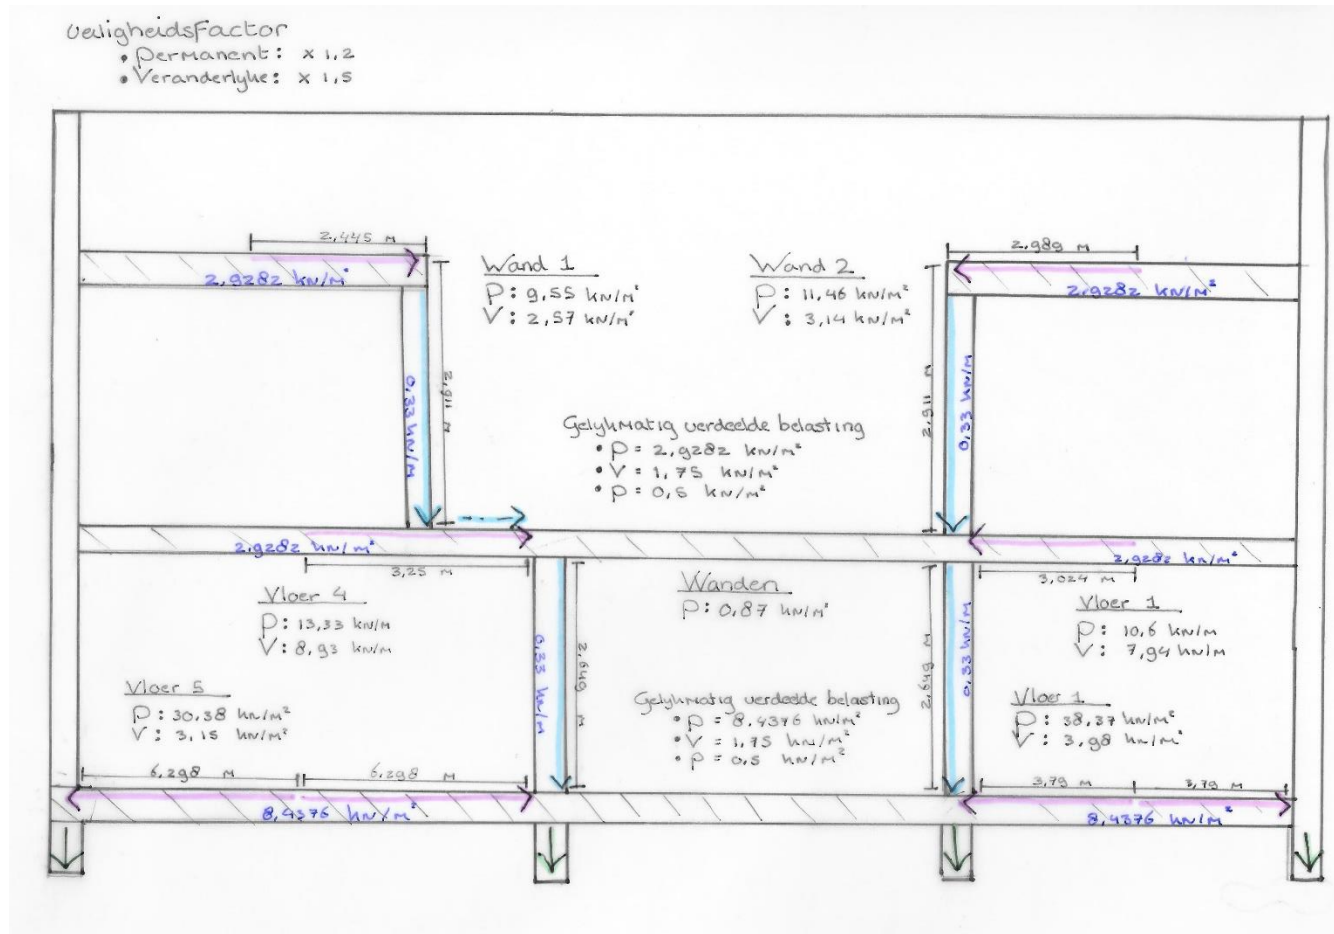 VeiligheidsFactor
• Permanent: x 1,2
• Veranderlyke: x 1,5
2,445 m
2,989 m
Wand 1
P: 9,55 kN/m²
V: 2,57 kN/m²
Wand 2
P: 11,46 kN/m²
V: 3,14 kN/m²
2,9282 kN/m²
2,9282 kN/m²
0,33 kN/m
2,911 m
2,911 m
0,33 kN/m
Gelykmatig verdeelde belasting
• P = 2,9282 kN/m²
• V = 1,75 kN/m²
• P = 0,5 kN/m²
2,9282 kN/m²
2,9282 kN/m²
3,25 m
3,024 m
Vloer 4
P: 13,33 kN/m
V: 8,93 kN/m
Wanden
P: 0,87 kN/m²
Vloer 1
P: 10,6 kN/m
V: 7,94 kN/m
0,33 kN/m
2,649 m
2,649 m
0,33 kN/m
Vloer 5
P: 30,38 kN/m²
V: 3,15 kN/m²
Gelykmatig verdeelde belasting
• P = 8,4376 kN/m²
• V = 1,75 kN/m²
• P = 0,5 kN/m²
Vloer 1
P: 38,37 kN/m²
V: 3,98 kN/m²
6,298 m
6,298 m
3,79 m
3,79 m
8,4376 kN/m²
8,4376 kN/m²